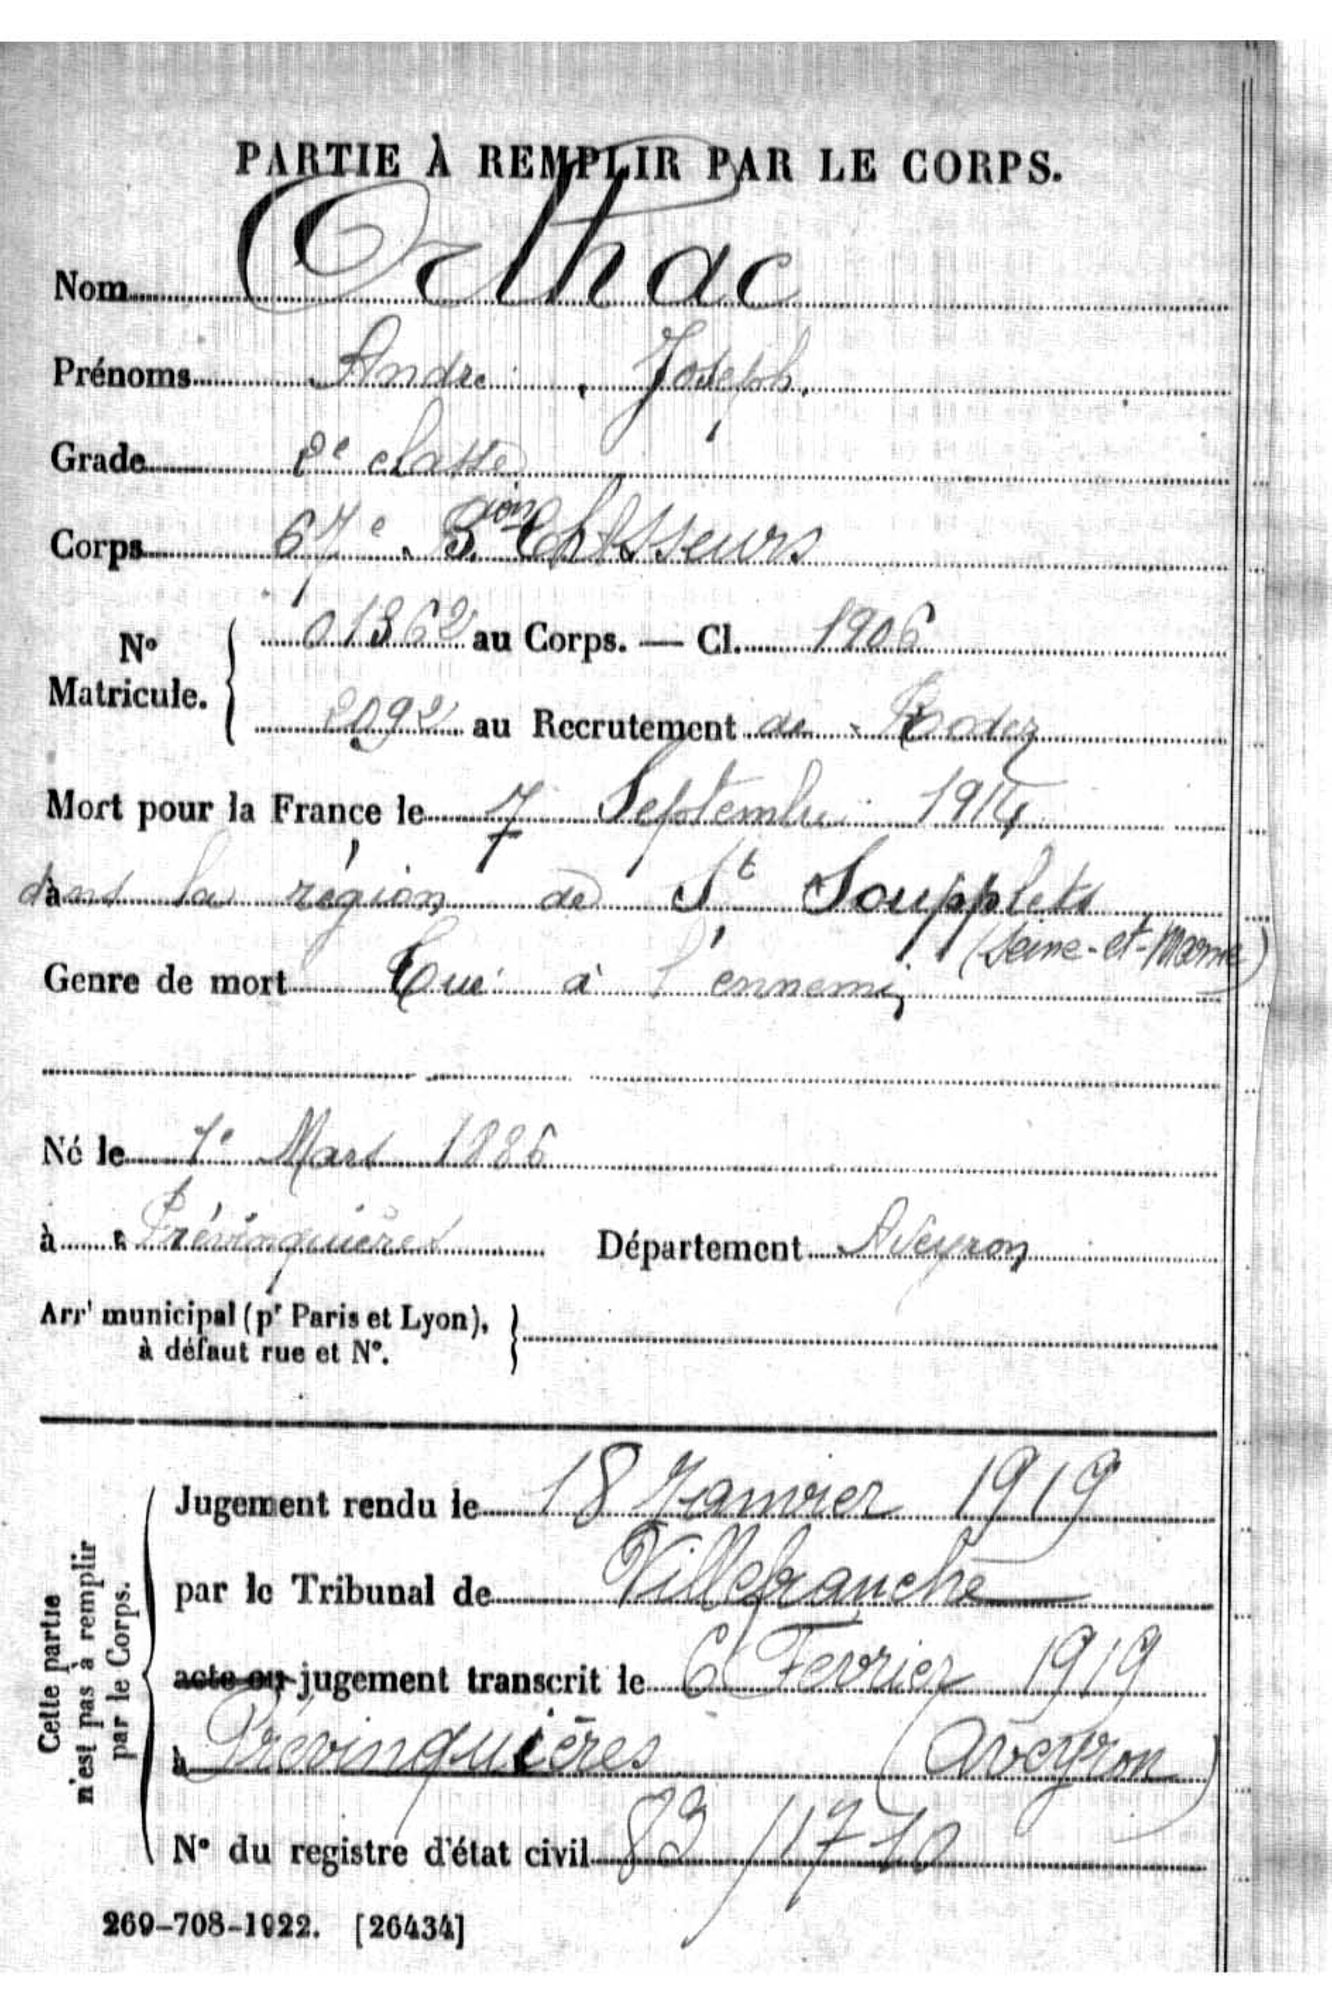 PARTIE À REMPLIR PAR LE CORPS.
Nom Orlhac
Prénoms André, Joseph.
Grade 2e classe
Corps 67e Bion Chasseurs
No Matricule. 01362 au Corps. — Cl. 1906
2092 au Recrutement de Rodez
Mort pour la France le 7 Septembre 1914
dans la région de St Soupplets
(Seine-et-Marne)
Genre de mort Tué à l'ennemi
Né le 1e Mars 1886
à Prévinquières Département Aveyron
Arrt municipal (pr Paris et Lyon),
à défaut rue et No.
Cette partie n'est pas à remplir par le Corps.
Jugement rendu le 18 Janvier 1919
par le Tribunal de Villefranche
acte ou jugement transcrit le 6 Fevrier 1919
à Prévinquières (Aveyron)
No du registre d'état civil 83/1710
269-708-1922. [26434]